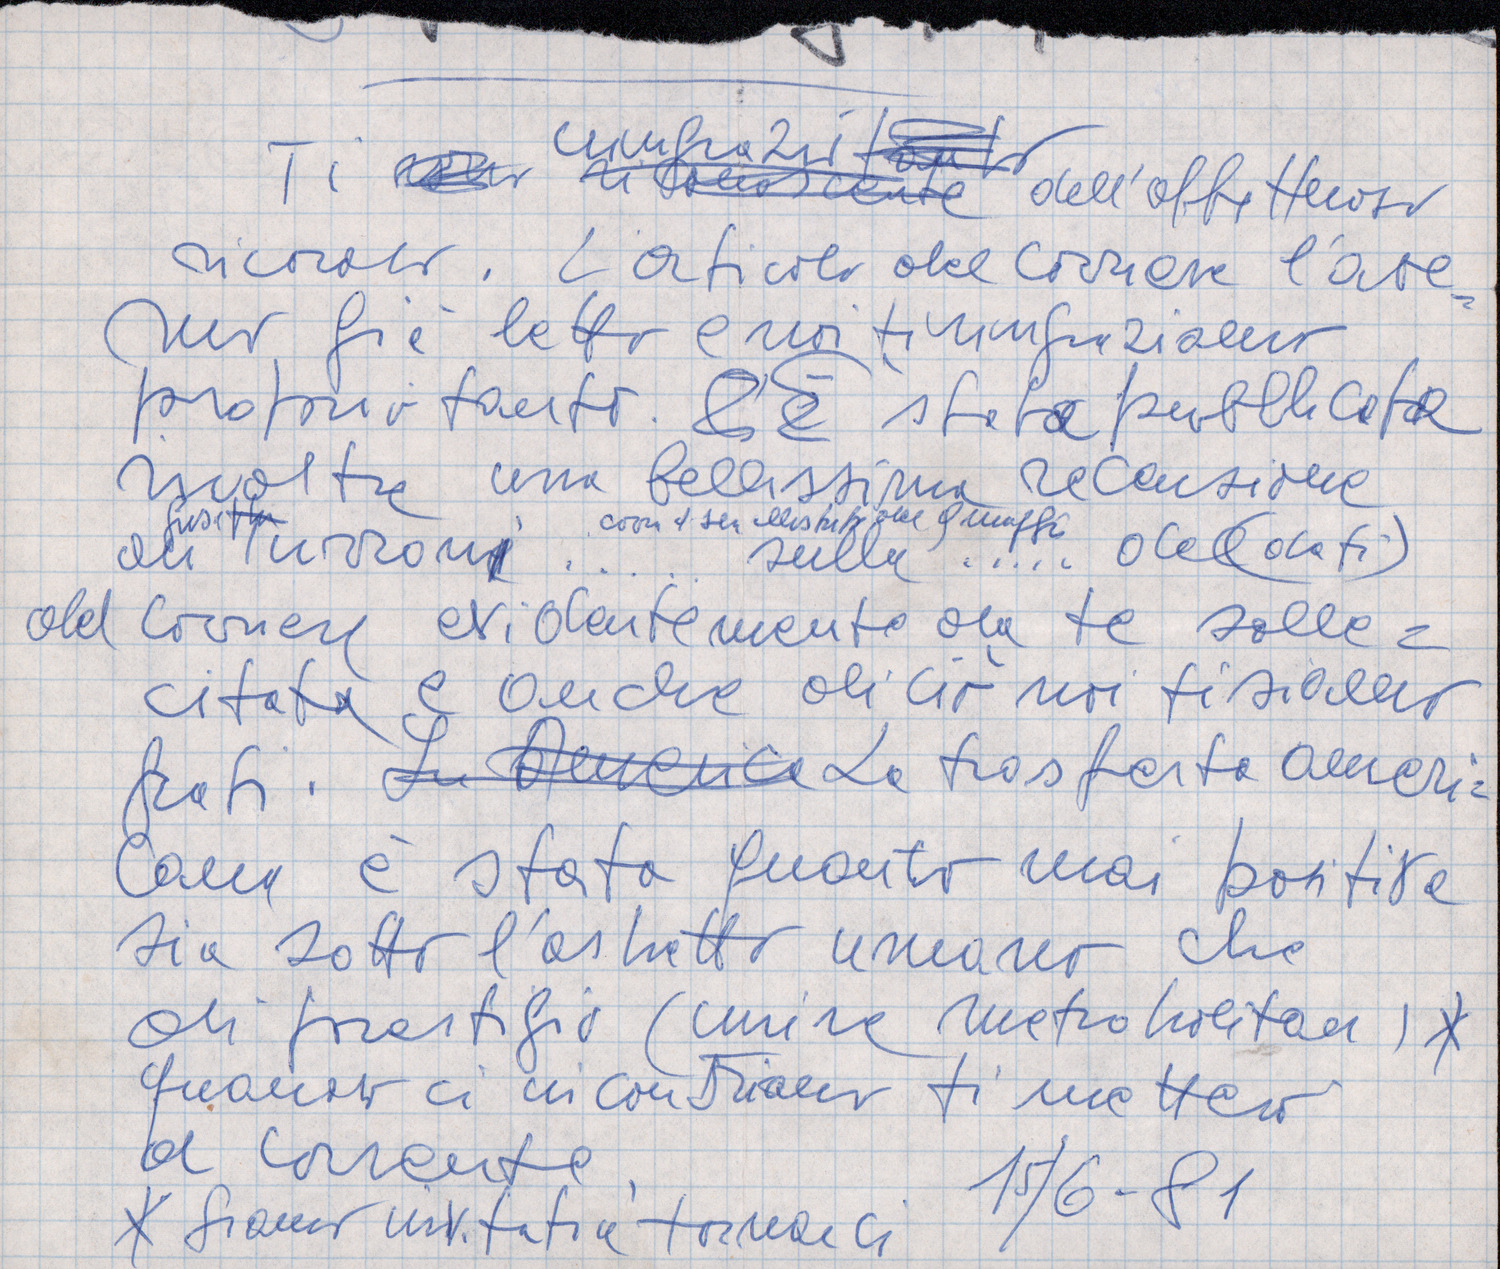 Ti ringrazio dell'affettuoso
ricordo. L'articolo del Corriere l'ave=
vamo già letto e noi ti ringraziamo
proprio tanto. È stata pubblicata
inoltre una bellissima recensione
di Turroni ..... sulla ..... del (dati)
del Corriere evidentemente da te solle=
citata e anche di ciò noi ti siamo
grati. In America La trasferta ameri=
cana è stata quanto mai positiva
sia sotto l'aspetto umano che
di prestigio (univ. metropolitan) *
quando ci incontriamo ti metterò
al corrente.
15/6-81
* Siamo invitati a tornarci